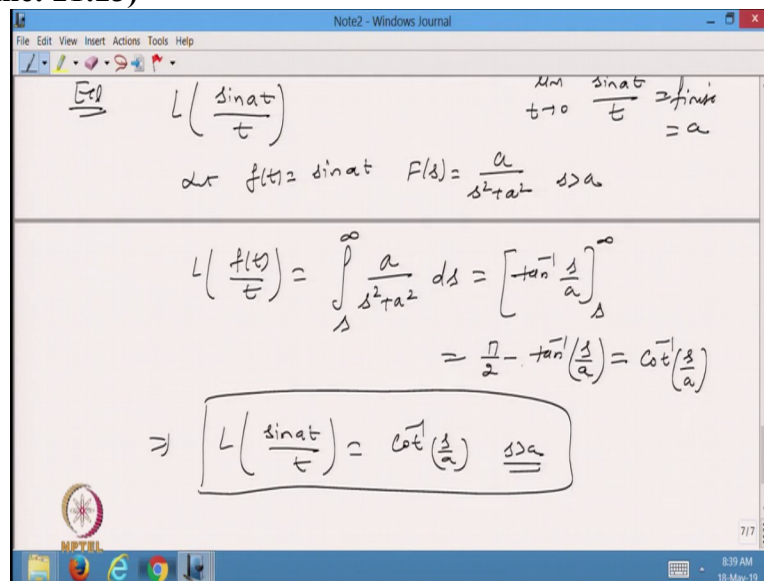 Note2 - Windows Journal
File Edit View Insert Actions Tools Help
L(sin at / t)
lim t→0 sin at / t = finite
= a
f(t) = sin at F(s) = a / (s²+a²) s>a
L(f(t) / t) = ∫_s^∞ a / (s²+a²) ds = [tan⁻¹ s/a]_s^∞
= π/2 - tan⁻¹(s/a) = cot⁻¹(s/a)
⇒ L(sin at / t) = cot⁻¹(s/a) s>a
NPTEL
7/7
8:39 AM
18-May-19